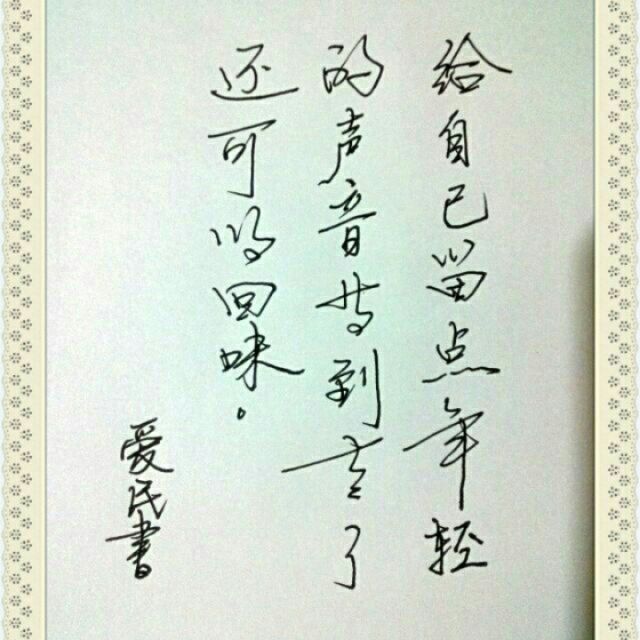 给自己留点年轻
的声音等到老了
还可以回味。
爱民書